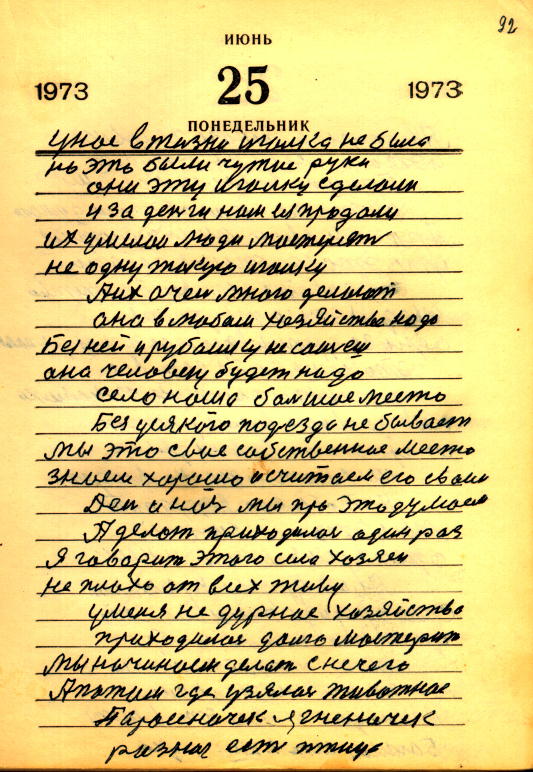 92
ИЮНЬ
1973 25 1973
ПОНЕДЕЛЬНИК
унае в жизни иголка не была
но это были чужие руки
они эту иголку сделали
и за деньги нам ея продали
их умелаи люди мастерят
не одну такую иголку
Аих очен много делают
она в любом хозяйстве надо
Без ней и рубашку не сашеш
она человеку будет надо
село наша большое место
Без усякого подезда не бывает
мы это свое собственное место
знаем хорошо и считаем его своим
Ден и ноч мы про это думаем
А делат приходилос один раз
Я говорит этого села хозяен
не плохо от всех живу
уменя не дурное хозяйство
приходилос долго мастерит
мы начинаем делат с нечего
Апотом где узялос животное
Паросеночек ягненочек
разная ест птица